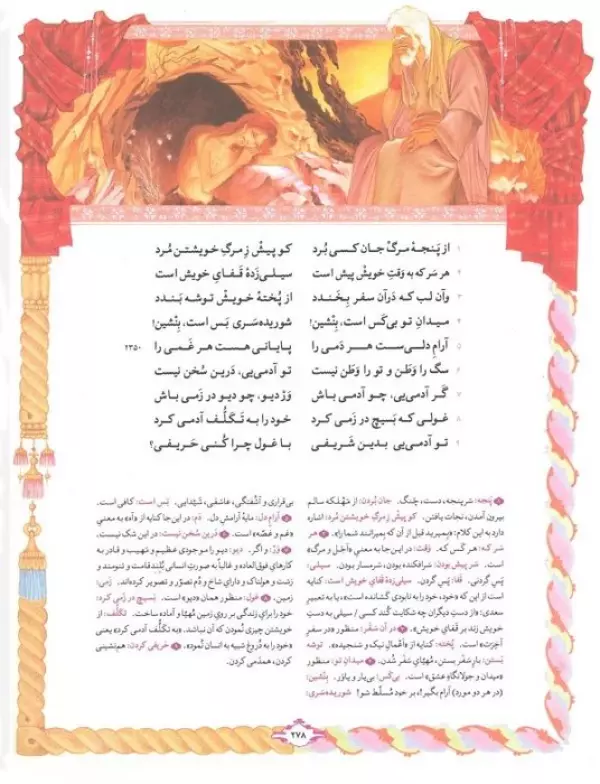 ۱ از پَنجهٔ مرگ جان کسی بُرد کو پیشْ زِ مرگِ خویشتن مُرد
۲ هر سَر که به وَقتِ خویشْ پیش است سیلی‌زَدهٔ قَفایِ خویش است
۳ وآن لب که دَرآن سفر بِخَندد از پُختهٔ خویشْ توشه بَندد
۴ میدانِ تو بی‌کَس است، بِنْشین! شوریده‌سَری بَس است، بِنْشین!
۵ آرامِ دلی‌ست هـر دَمی را پایانی هست هر غَمی را ۲۳۵۰
۶ سگ را وَطَن و تو را وَطَن نیست تو آدمی‌یی، دَرین سُخن نیست
۷ گَر آدمی‌یی، چو آدمی باش وَرْ دیو، چو دیو در زَمی باش
۸ غولی که بَسیچ در زَمی کرد خود را به تَکَلُّف آدمی کرد
۹ تو آدمی‌یی بدین شَریفی با غول چرا کُنی حَریفی؟
۱ پَنجه: سَرپنجه، دست، چَنگ. جان بُردن: از مَهلکه سالم
بیرون آمدن، نجات یافتن. کو پیش زِ مرگِ خویشتن مُرد: اشاره
دارد به این کلام: «بِمیرید قبل از آن که بِمیرانند شما را». ۲ هر
سَر که: هر کَس که. وَقت: در این‌جا به معنیِ «أجَل و مرگ»
سَر پیش بودن: سَرافکنده بودن، شرمسار بودن. سیلی:
پَس گردنی. قَفا: پَسِ گردن. سیلی‌زَدهٔ قَفایِ خویش است: کنایه
از این که «خود، خود را به نابودی کشانده است»، یا به تعبیرِ
سعدی: «از دستِ دیگران چه شکایت کُند کسی / سیلی به دستِ
خویش زند بر قَفایِ خویش». ۳ در آن سَفَر: منظور «در سفرِ
آخِرَت» است. پُخته: کنایه از «أعمالِ نیک و سَنجیده». توشه
بَستن: بارِ سَفَر بستن، مُهیّایِ سَفَر شُدن. ۴ میدانِ تو: منظور
«میدان و جولانگاهِ عشق» است. بی‌کَس: بی‌یار و یاوَر. بِنْشین:
(در هر دو مورد) آرام بگیر!، بر خود مُسلّط شو! شوریده‌سَری:
بی‌قراری و آشُفتگی، عاشقی، شَیْدایی. بَس است: کافی است.
۵ آرامِ دل: مایهٔ آرامشِ دل. دَم: در این‌جا کنایه از «آه» به معنیِ
«غم و غصّه» است. ۶ دَرین سُخن نیست: در این شک نیست.
۷ وَرْ: و اگر. دیو: دیو را موجودی عظیم و مَهیب و قادر به
کارهای فوق‌العاده و غالباً به صورتِ انسانی بُلند قامت و تنومند و
زشت و هولناک و دارایِ شاخ و دُم تصوّر و تصویر کرده‌اند. زَمی:
زمین. ۸ غول: منظور همان «دیو» است. بَسیچ در زَمی کرد:
خود را برایِ زندگی بر رویِ زمین مُهیّا و آماده ساخت. تَکَلُّف: از
خویشتن چیزی نُمودن که آن نباشد. «به تَکَلُّف آدمی کرد» یعنی
«خود را به دُروغ شبیه به انسان نُمود». ۹ حَریفی کَردن: هم‌نِشینی
کردن، همدَمی کردن.
۲۷۸